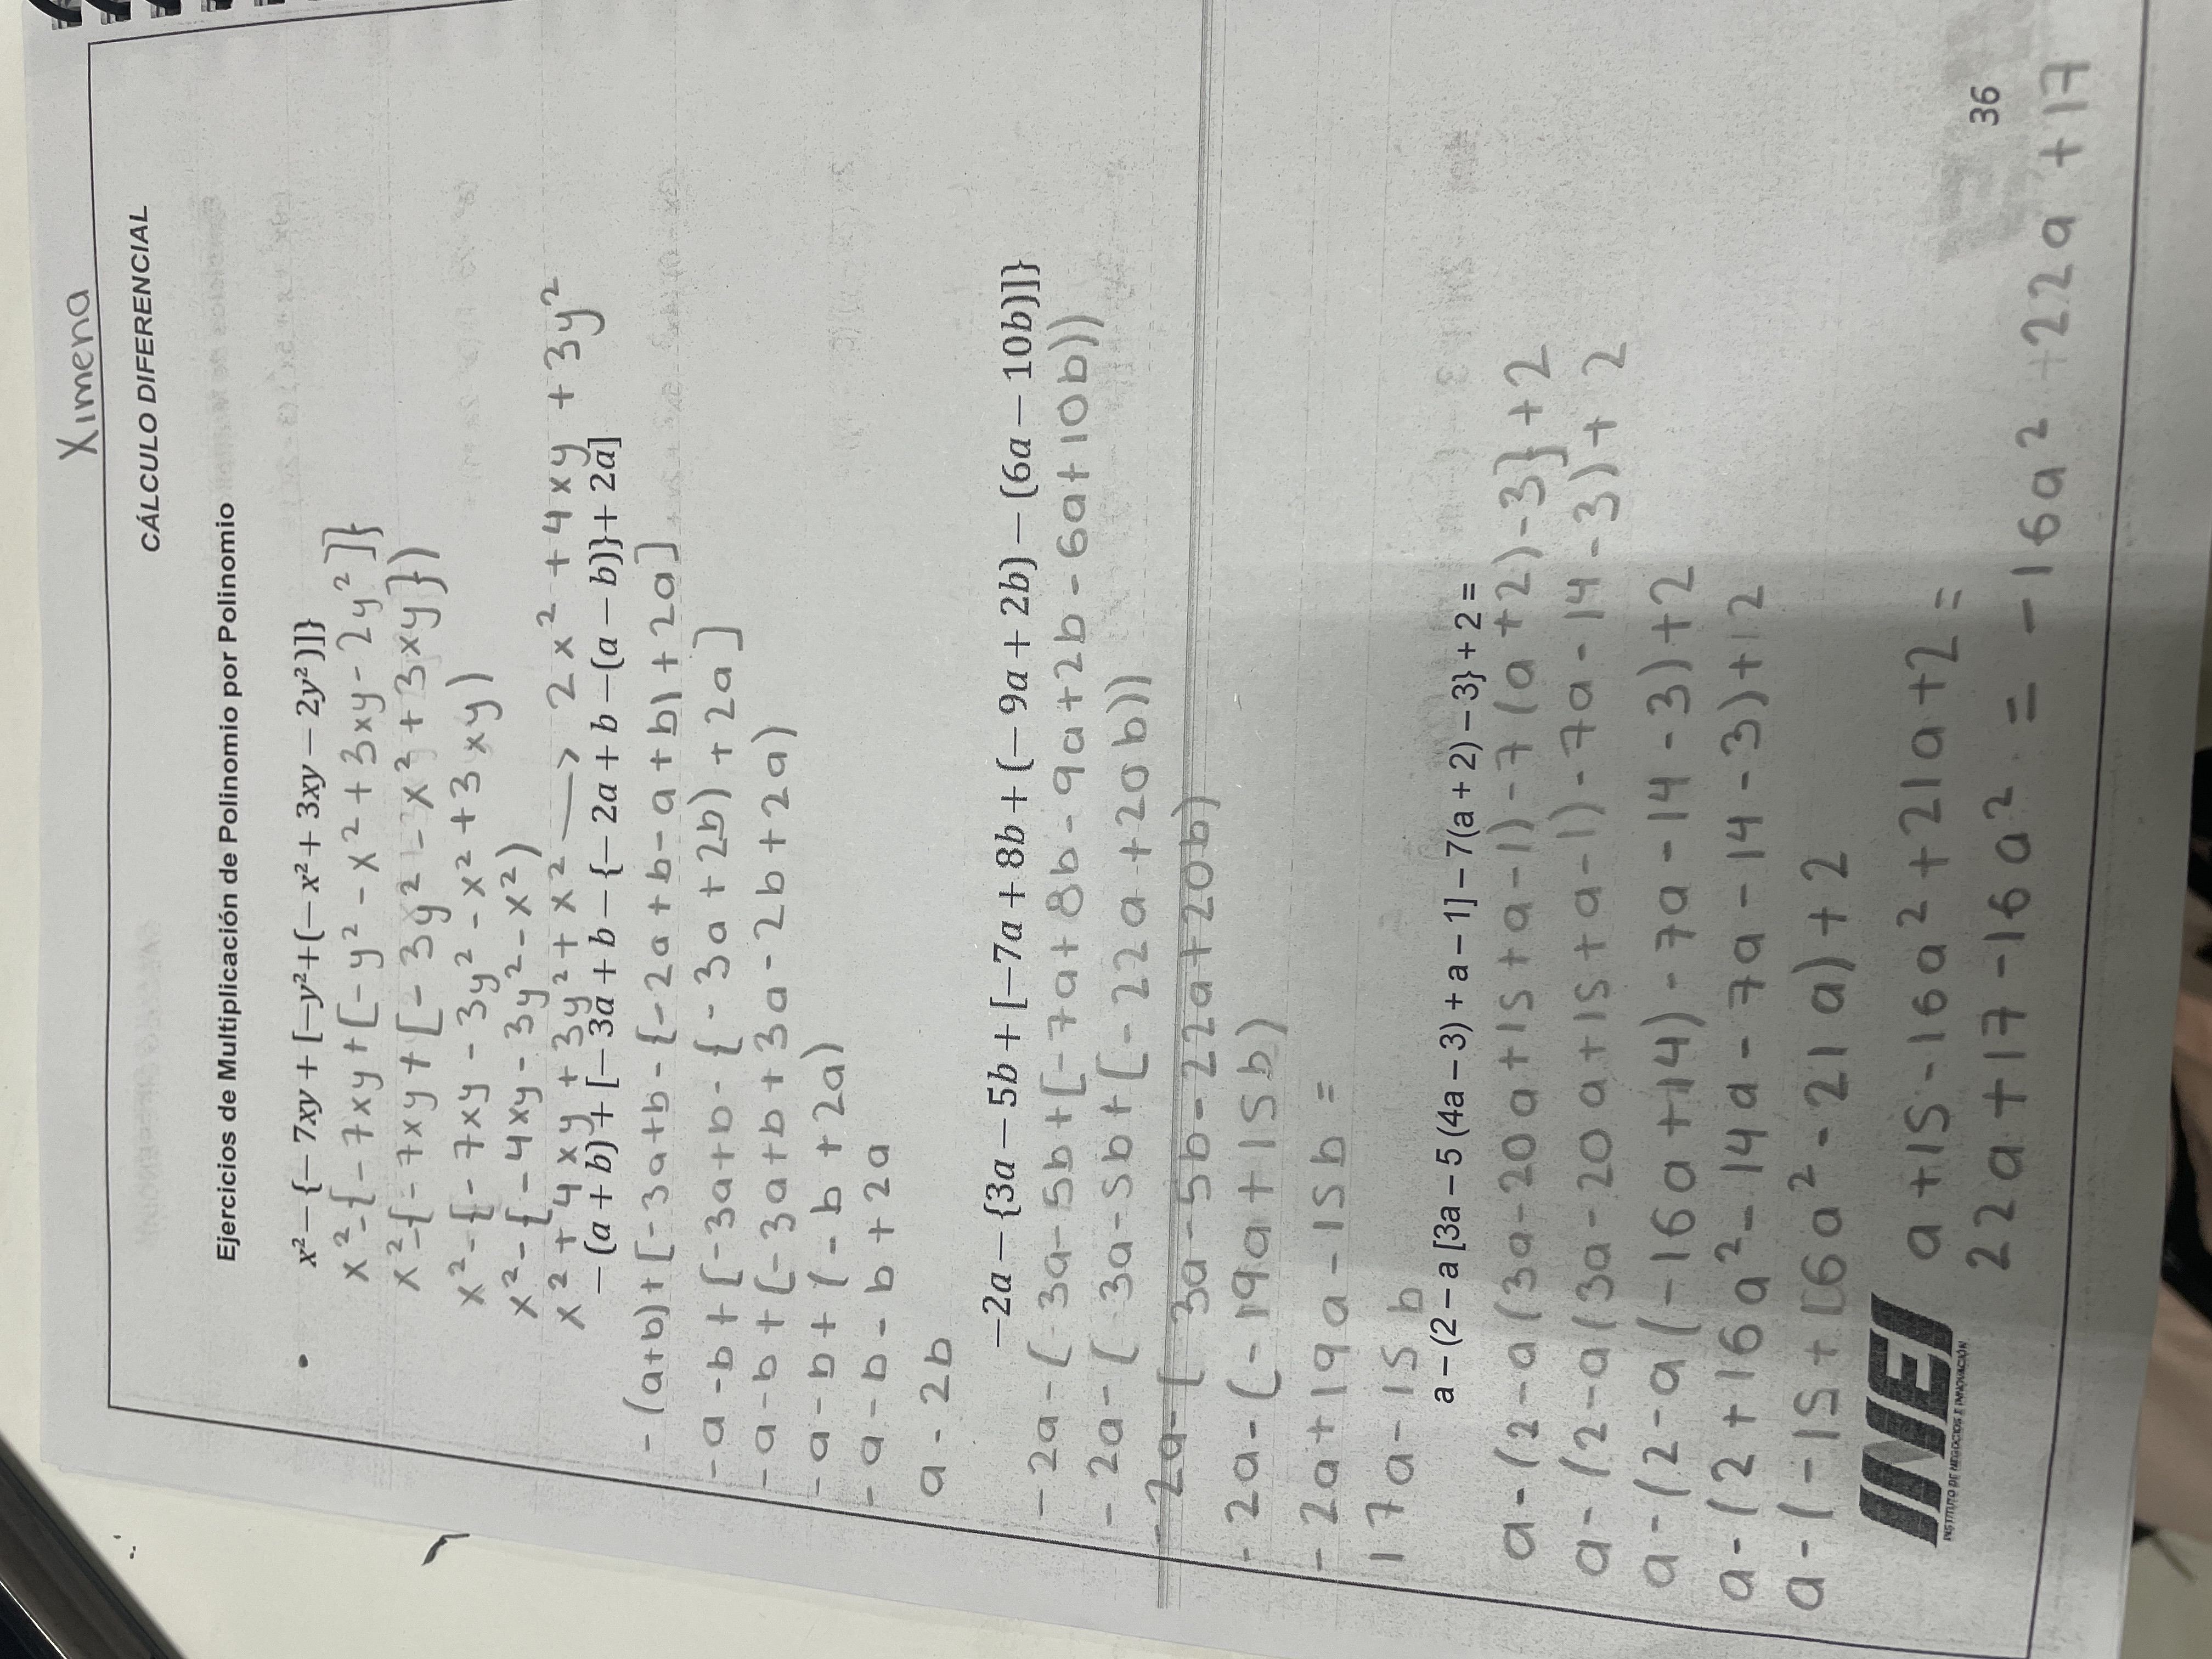 Ximena
CÁLCULO DIFERENCIAL
Ejercicios de Multiplicación de Polinomio por Polinomio
• x²−{−7xy + [−y²+(−x² + 3xy − 2y²)]}
x²-{-7xy+[-y²-x²+3xy-2y²]}
x²-{-7xy+[-3y²-x²+3xy]})
x²-{-7xy-3y²-x²+3xy)
x²-{-4xy-3y²-x²)
x²+4xy+3y²+x² → 2x²+4xy+3y²
−(a + b) + [−3a + b − {−2a + b −(a − b)}+ 2a]
-(a+b)+[-3a+b-{-2a+b-a+b)+2a]
-a-b+[-3a+b-{-3a+2b)+2a]
-a-b+(-3a+b+3a-2b+2a)
-a-b+(-b+2a)
-a-b-b+2a
a-2b
−2a−{3a − 5b + [−7a + 8b + (−9a + 2b) − (6a − 10b)]}
-2a-(3a-5b+[-7a+8b-9a+2b-6a+10b))
-2a-(3a-5b+[-22a+20b))
-2a-[3a-5b-22a+20b)
-2a-(-19a+15b)
-2a+19a-15b=
17a-15b
a − (2 − a [3a − 5 (4a − 3) + a − 1] − 7(a + 2) − 3} + 2 =
a-(2-a(3a-20a+15+a-1)-7(a+2)-3}+2
a-(2-a(3a-20a+15+a-1)-7a-14-3)+2
a-(2-a(-16a+14)-7a-14-3)+2
a-(2+16a²-14a-7a-14-3)+2
a-(-15+16a²-21a)+2
a+15-16a²+21a+2=
22a+17-16a² = -16a²+22a+17
INEI
INSTITUTO DE NEGOCIOS E INNOVACIÓN
36